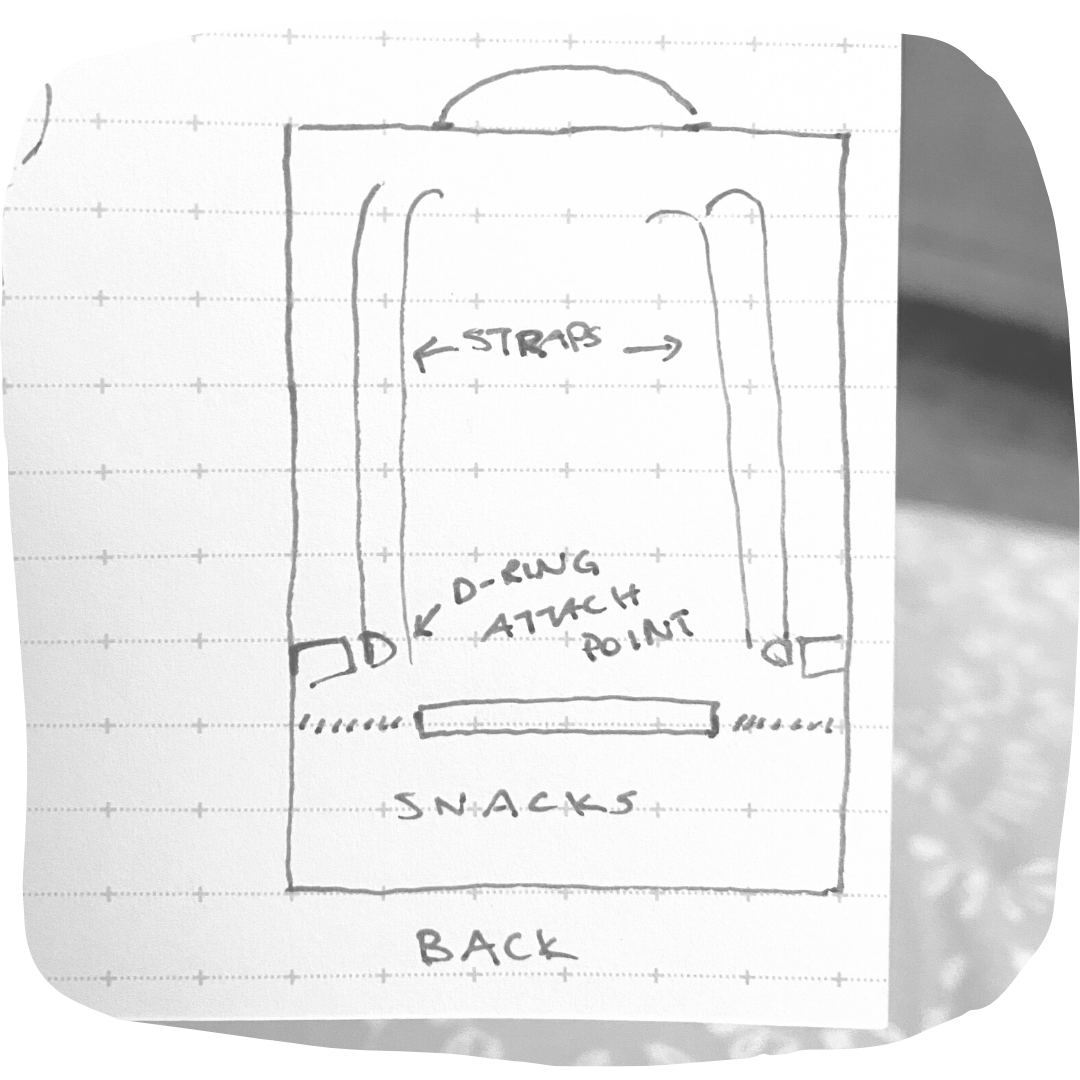 STRAPS
D-RING
ATTACH
POINT
SNACKS
BACK